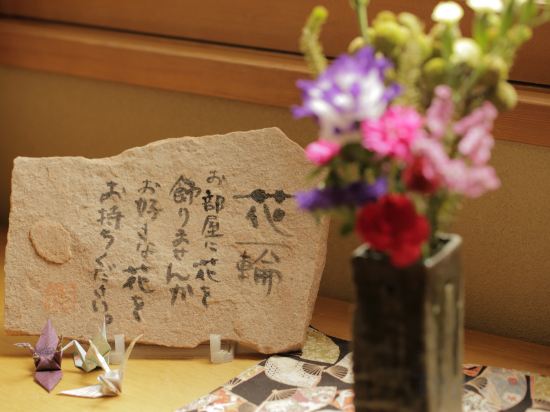 花一輪
お部屋に花を
飾りませんか
お好きな花を
お持ちください。